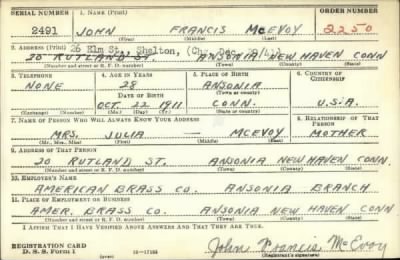 SERIAL NUMBER 1. NAME (Print) ORDER NUMBER
2491 JOHN FRANCIS McEVOY 2250
(First) (Middle) (Last)
2. ADDRESS (Print) 26 Elm St., Shelton,
20 RUTLAND ST. ANSONIA NEW HAVEN CONN
(Number and street or R. F. D. number) (Town) (County) (State)
3. TELEPHONE 4. AGE IN YEARS 5. PLACE OF BIRTH 6. COUNTRY OF CITIZENSHIP
NONE 28 ANSONIA
DATE OF BIRTH (Town or county)
OCT. 22 1911 CONN. U.S.A.
(Exchange) (Number) (Mo.) (Day) (Yr.) (State or country)
7. NAME OF PERSON WHO WILL ALWAYS KNOW YOUR ADDRESS 8. RELATIONSHIP OF THAT PERSON
MRS. JULIA — McEVOY MOTHER
(Mr., Mrs., Miss) (First) (Middle) (Last)
9. ADDRESS OF THAT PERSON
20 RUTLAND ST. ANSONIA NEW HAVEN CONN.
(Number and street or R. F. D. number) (Town) (County) (State)
10. EMPLOYER'S NAME
AMERICAN BRASS CO. ANSONIA BRANCH
11. PLACE OF EMPLOYMENT OR BUSINESS
AMER. BRASS CO. ANSONIA NEW HAVEN CONN
(Number and street or R. F. D. number) (Town) (County) (State)
I AFFIRM THAT I HAVE VERIFIED ABOVE ANSWERS AND THAT THEY ARE TRUE.
REGISTRATION CARD
D. S. S. Form 1 (over) 16—17105 John Francis McEvoy
(Registrant's signature)